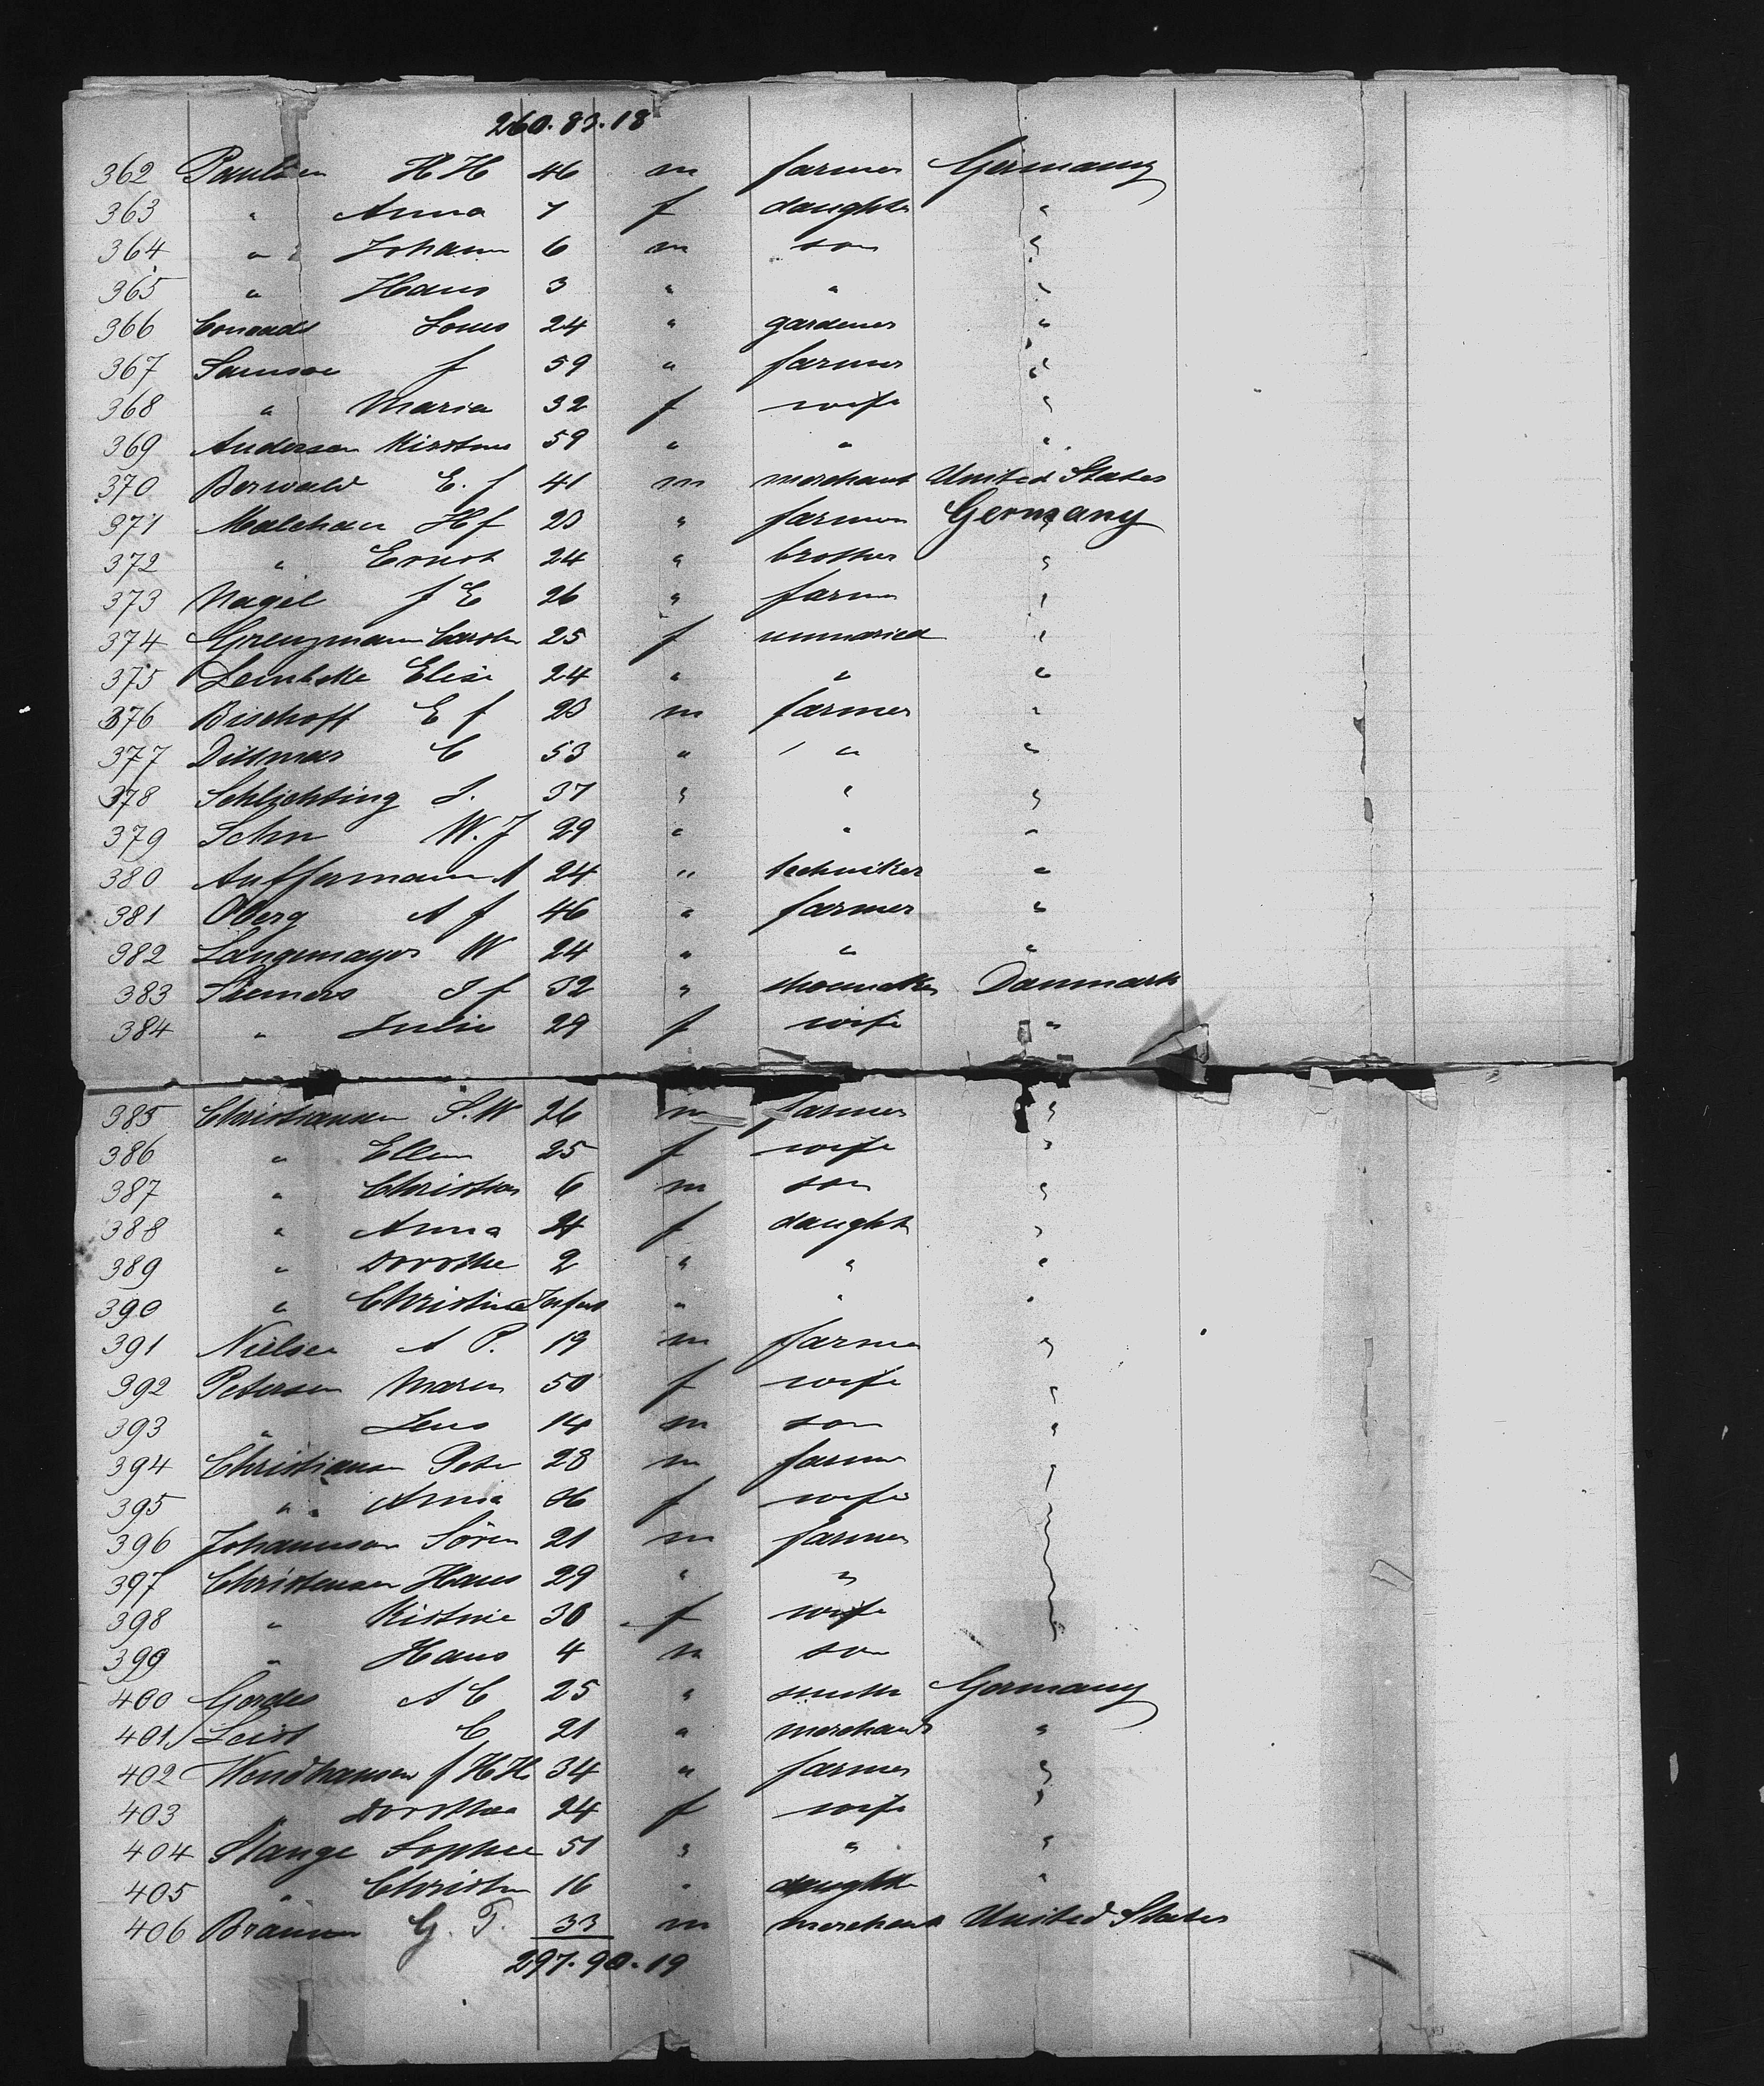 260. 83. 18
362 Paulsen H H 46 m farmer Germany
363 " Anna 7 f daughter "
364 " Johann 6 m son "
365 " Hans 3 " " "
366 Conradt Louis 24 " gardener "
367 Samson J 59 " farmer "
368 " Maria 32 f wife "
369 Andersen Kirstine 59 " " "
370 Berwald E. J 41 m merchant United States
371 Malchau H J 23 " farmer Germany
372 " Ernst 24 " brother "
373 Nagel J E 26 " farmer "
374 Grenzmann 25 f unmaried "
375 Lembcke Elise 24 " " "
376 Bischoff E J 23 m farmer "
377 Dittmar C 53 " " "
378 Schlichting J. 37 " " "
379 Sehn W. J 29 " " "
380 Auffermann A 24 " techniker "
381 Oberg A J 46 " farmer "
382 Langemayer W 24 " " "
383 Siemers J J 32 " shoemaker Danmark
384 " Julie 29 f wife "
385 Christiansen S. W 26 m farmer "
386 " Ellen 25 f wife "
387 " Christian 6 m son "
388 " Anna 4 f daughter "
389 " Dorothe 2 " " "
390 " Christine Infant " " "
391 Nielsen A P. 19 m farmer "
392 Petersen Maren 50 f wife "
393 " Jens 14 m son "
394 Christiansen Peter 28 m farmer "
395 " Anna 36 f wife
396 Johannsen Sören 21 m farmer
397 Christensen Hans 29 " "
398 " Kistine 30 f wife
399 " Hans 4 m son
400 Gerdes A C 25 " smith Germany
401 Leist C 21 " merchant "
402 Wendhausen J H H 34 " farmer "
403 " Dorothea 24 f wife "
404 Stange Sophie 51 " " "
405 " Christin 16 " daughter "
406 Braunn G. T. 33 m merchant United States
297. 90. 19